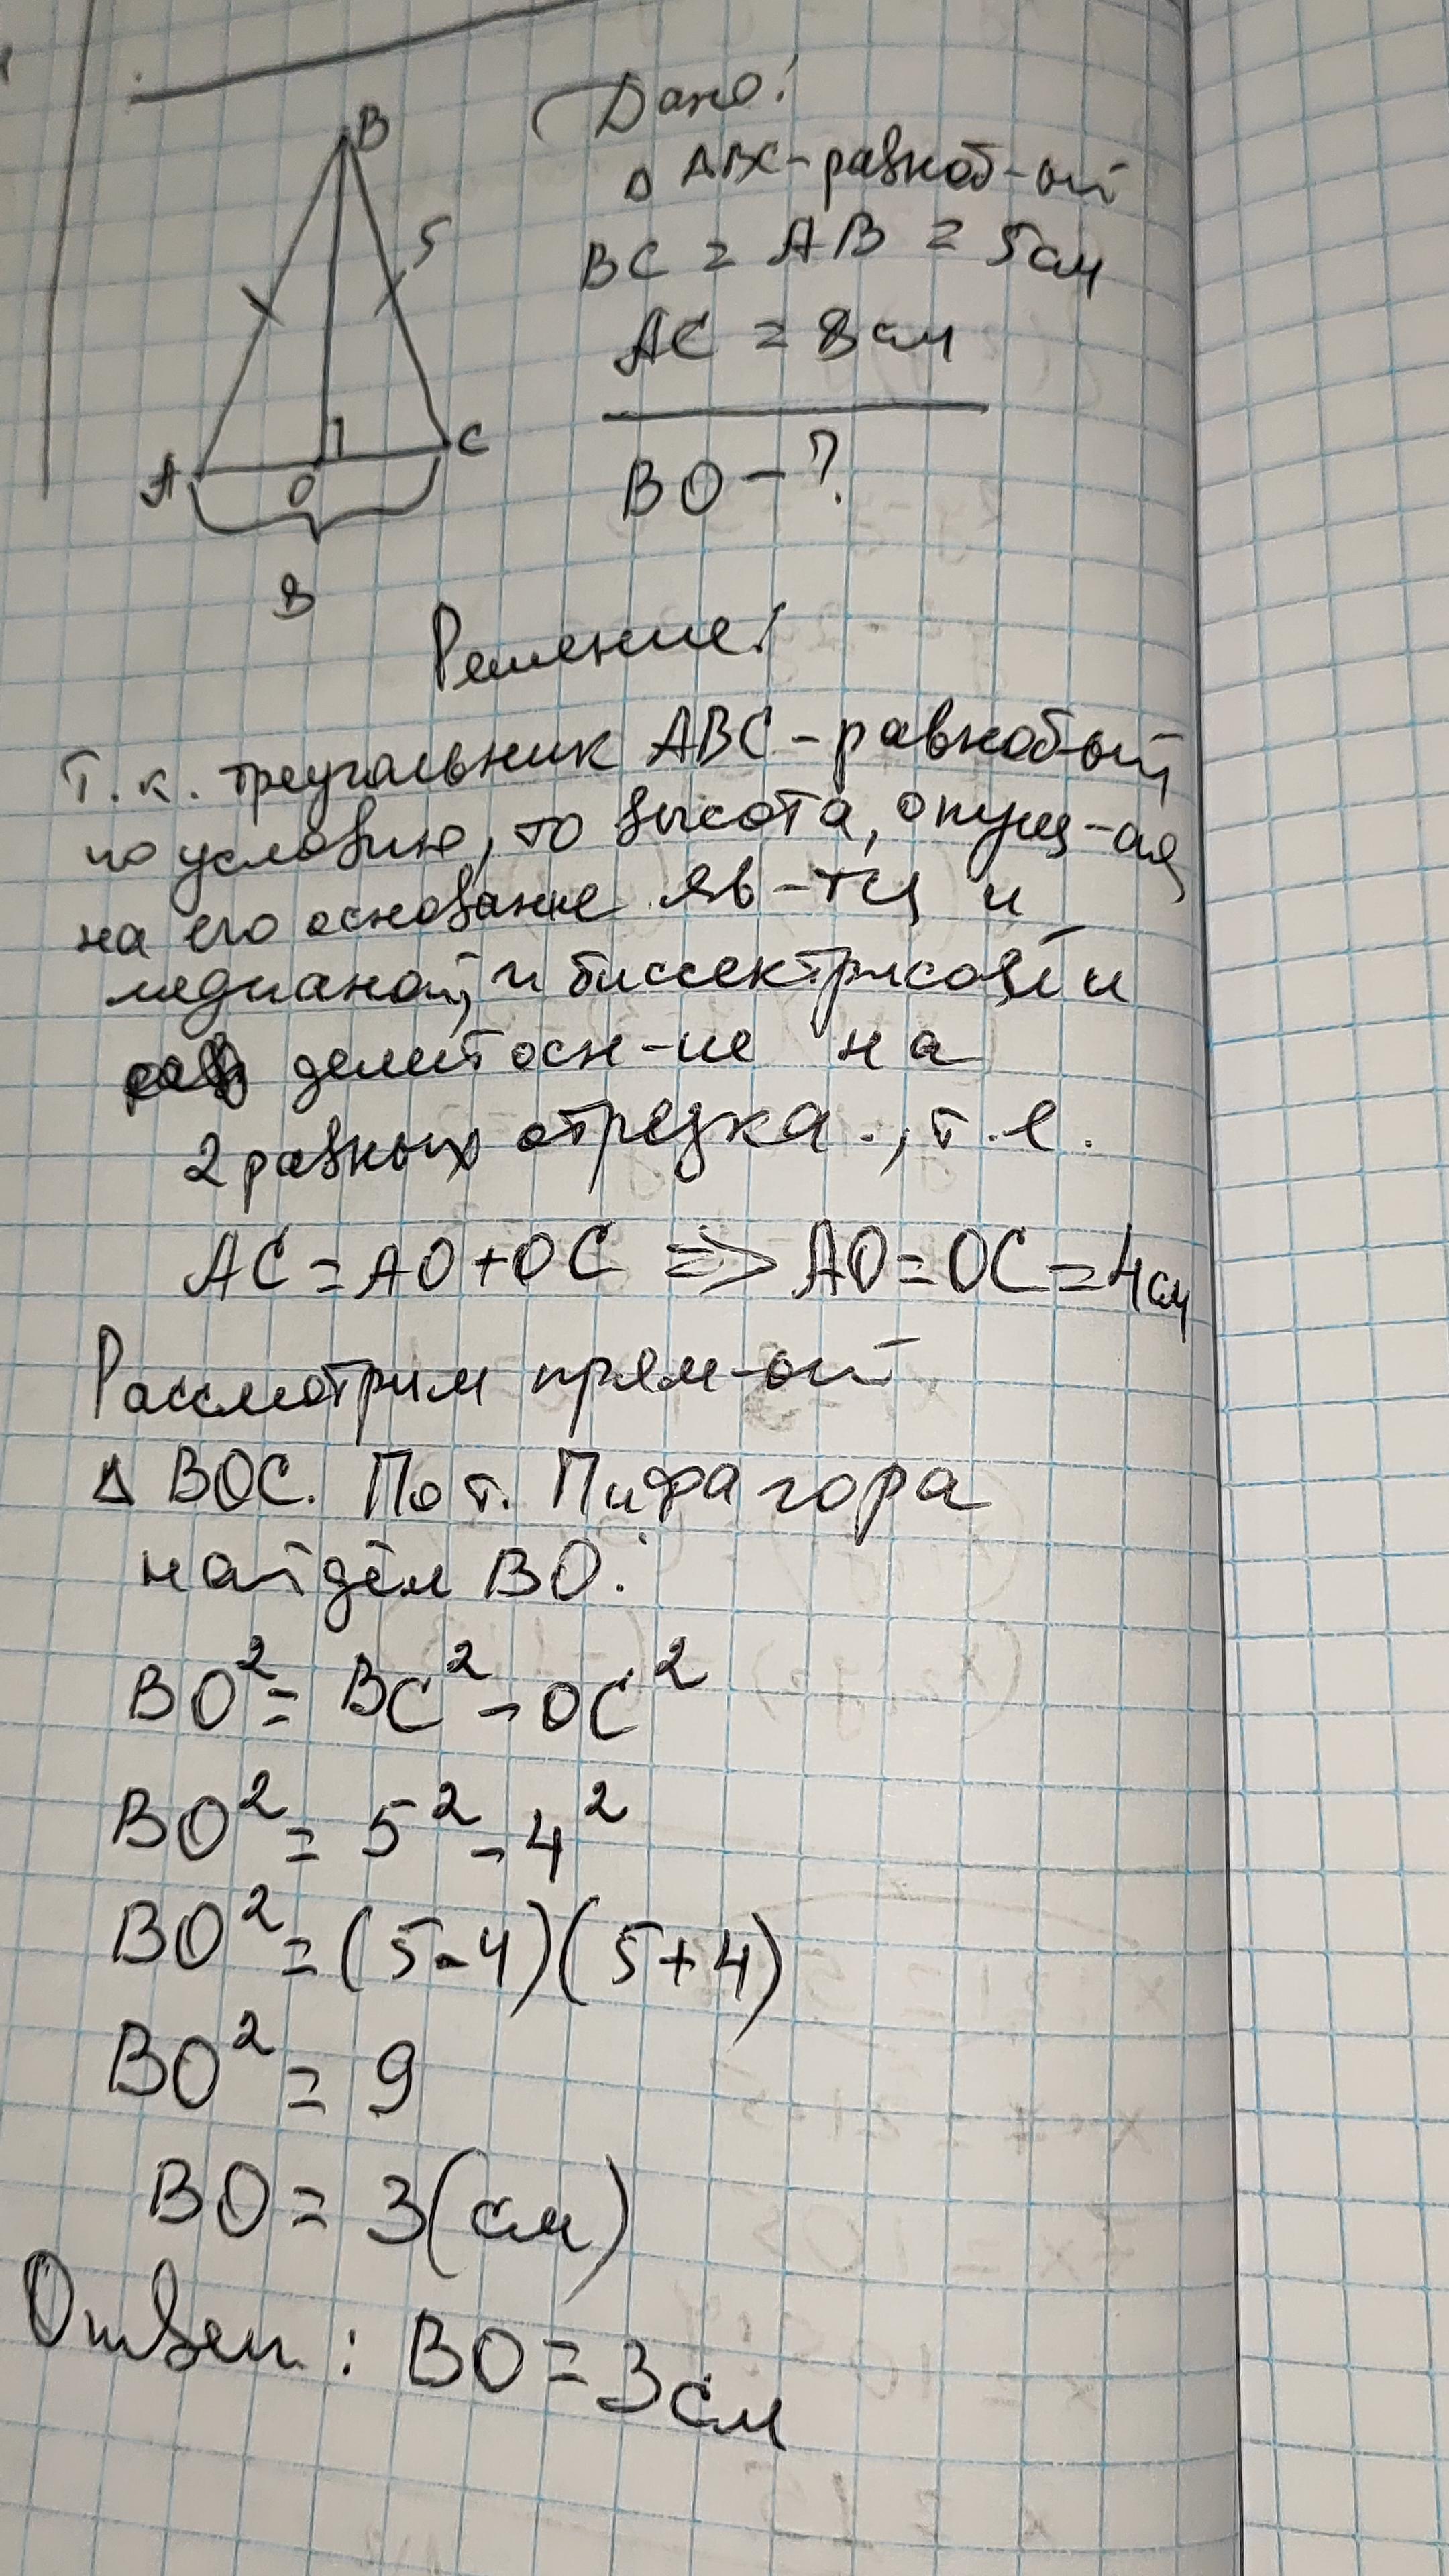 B
5
A
O
C
8
Дано:
Δ ABC - равноб-ый
BC = AB = 5см
AC = 8см
BO - ?
Решение:
Т.к. треугольник ABC - равнобый
по условию, то высота, опущ-ая
на его основание яв-тся и
медианой, и биссектрисой и
делит осн-ие на
2 равных отрезка., т.е.
AC = AO + OC => AO = OC = 4см
Рассмотрим прям-ый
Δ BOC. По т. Пифагора
найдём BO:
BO² = BC² - OC²
BO² = 5² - 4²
BO² = (5-4)(5+4)
BO² = 9
BO = 3(см)
Ответ: BO = 3см